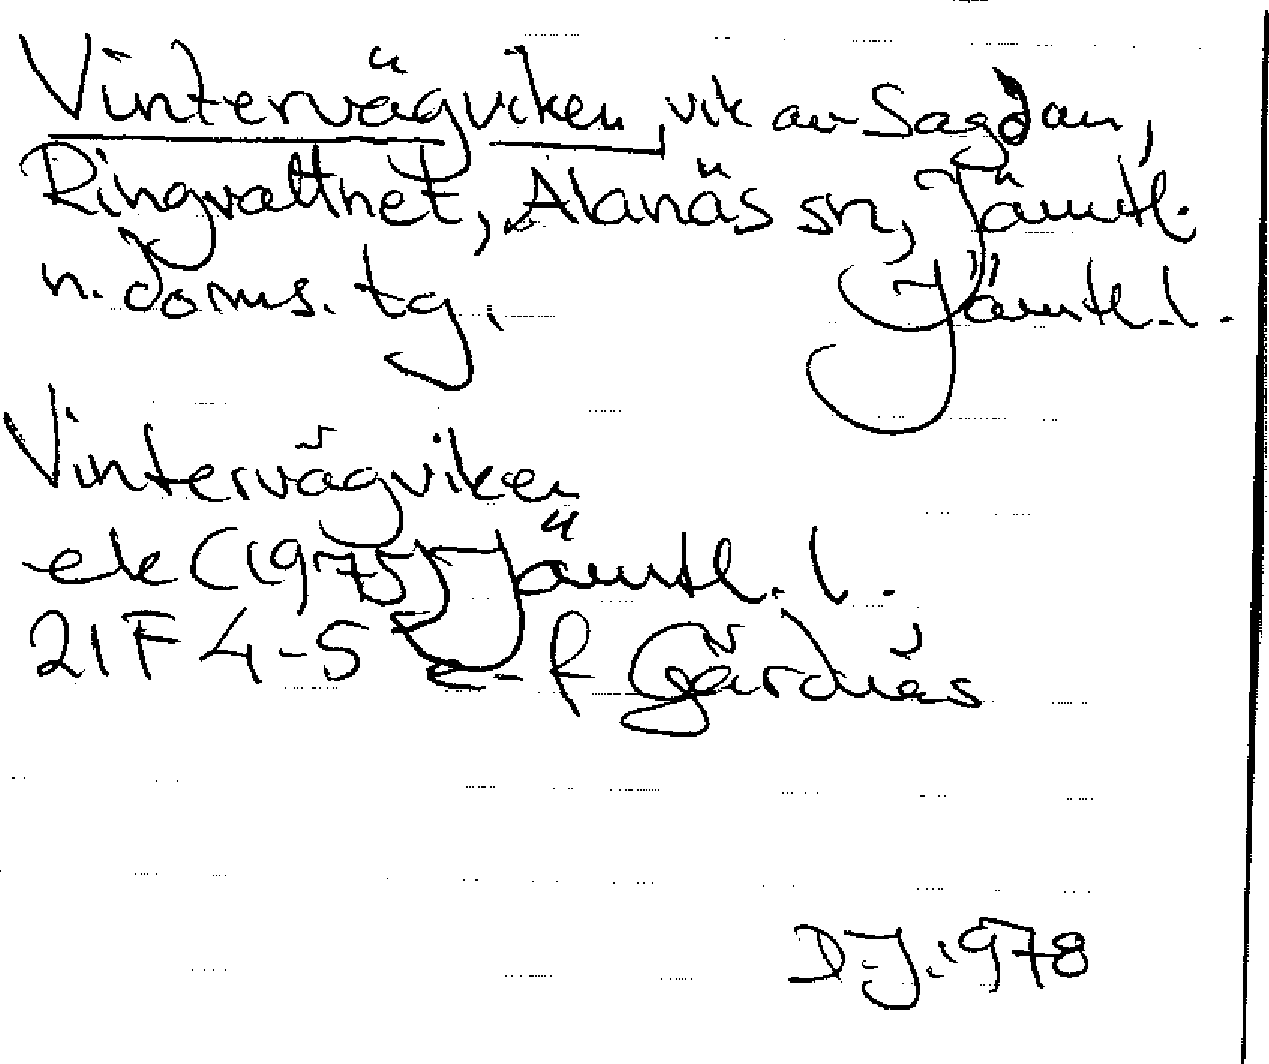 Vintervägviken, vik av Sagdan,
Ringvattnet, Alanäs sn, Jämtl.
n. doms. tg. Jämtl. l.
Vintervägviken
ek (1975) Jämtl. l.
21F 4-5 e-f Gärdnäs
DJ. 1978